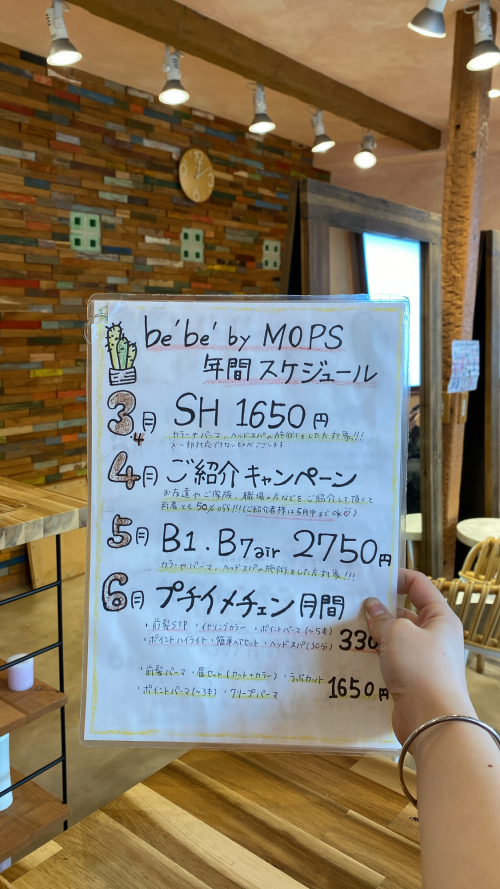 be'be' by MOPS
年間スケジュール
3月 SH 1650円
4
カラーやパーマ、ヘッドスパの施術をした方対象!!!
4月 ご紹介キャンペーン
お友達やご家族、職場の方などをご紹介して頂くと
両者とも50%off!!!(ご紹介者様は5月中までok♡)
5月 B1.B7air 2750円
カラーやパーマ、ヘッドスパの施術をした方対象!!!
6月 プチイメチェン月間
・前髪STP ・イヤリングカラー ・ポイントパーマ(〜5本)
・ポイントハイライト ・簡単ヘアセット ・ヘッドスパ(30分) 330
・前髪パーマ ・眉セット(カット+カラー) ・うぶカット
・ポイントパーマ(〜3本) ・クリープパーマ 1650円